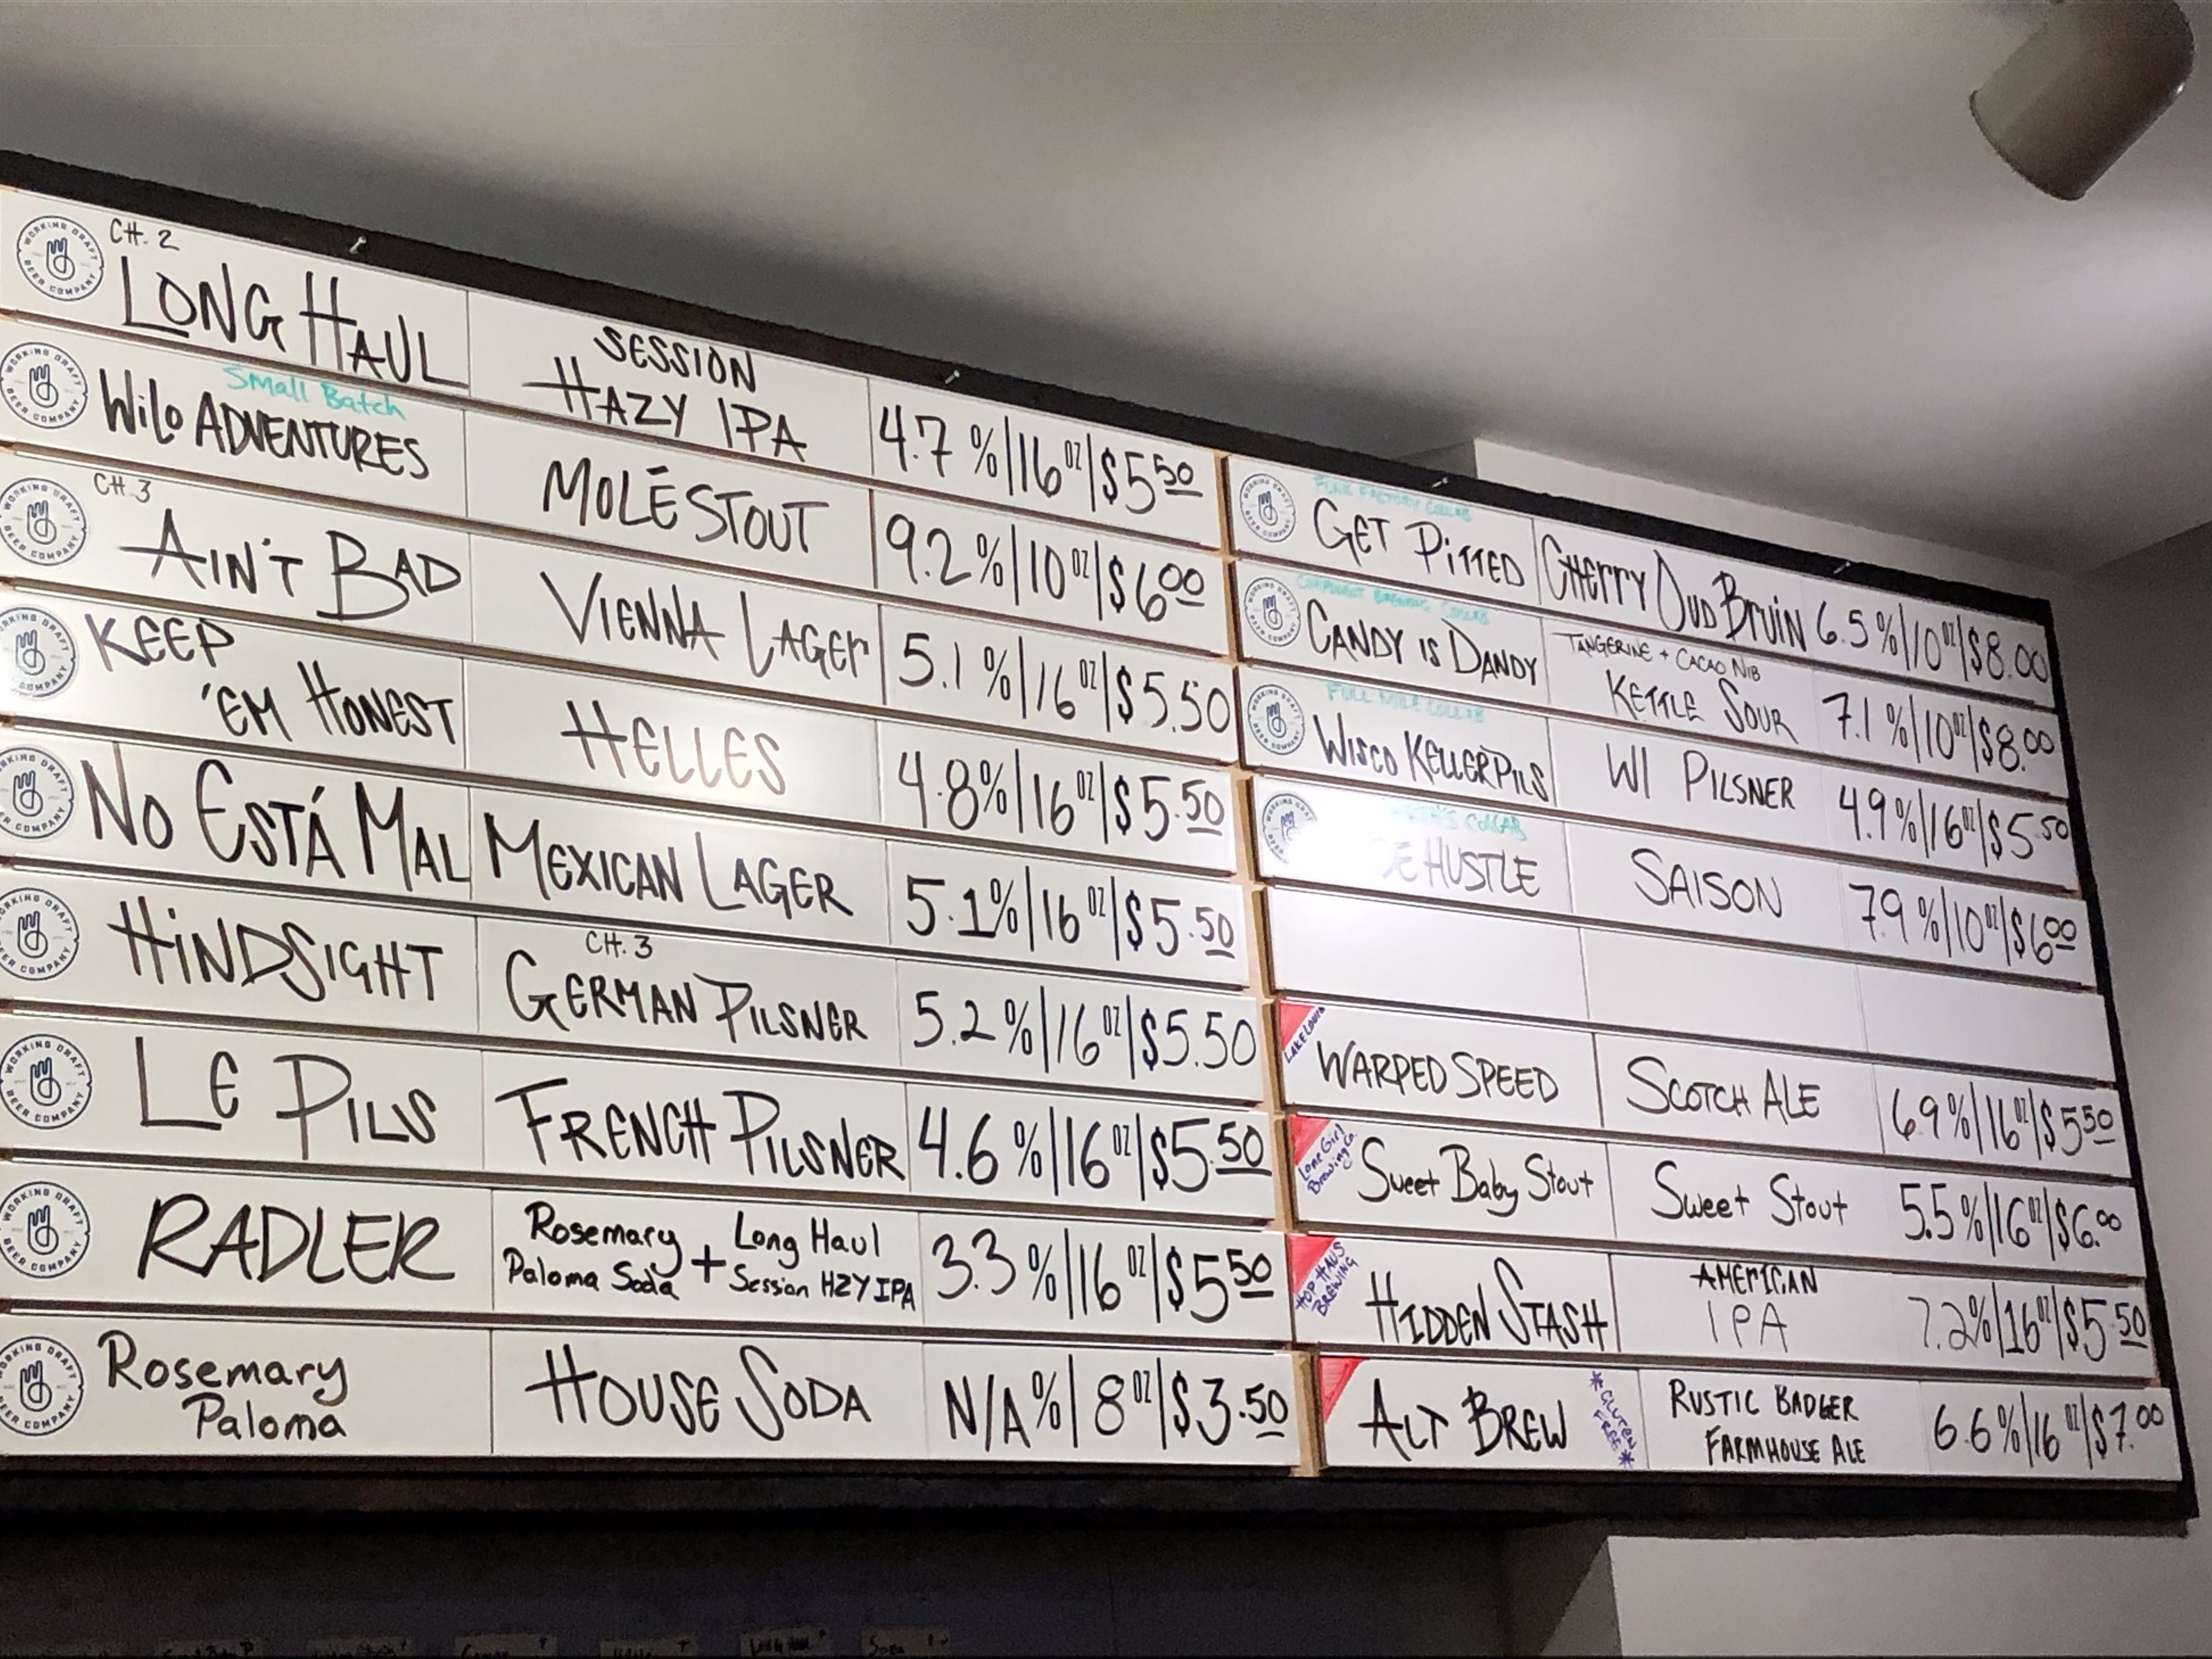 WORKING DRAFT BEER COMPANY
CH. 2
LONG HAUL
SESSION
HAZY IPA
4.7%|16OZ|$5 50
WORKING DRAFT BEER COMPANY
Small Batch
WILD ADVENTURES
MOLÉ STOUT
9.2%|10OZ|$6 00
WORKING DRAFT BEER COMPANY
CH. 3
AIN'T BAD
VIENNA LAGER
5.1%|16OZ|$5.50
WORKING DRAFT BEER COMPANY
KEEP
'EM HONEST
HELLES
4.8%|16OZ|$5.50
WORKING DRAFT BEER COMPANY
NO ESTÁ MAL
MEXICAN LAGER
5.1%|16OZ|$5.50
WORKING DRAFT BEER COMPANY
HINDSIGHT
CH. 3
GERMAN PILSNER
5.2%|16OZ|$5.50
WORKING DRAFT BEER COMPANY
LE PILS
FRENCH PILSNER
4.6%|16OZ|$5.50
WORKING DRAFT BEER COMPANY
RADLER
Rosemary Paloma Soda + Long Haul Session HZY IPA
3.3%|16OZ|$5 50
WORKING DRAFT BEER COMPANY
Rosemary
Paloma
HOUSE SODA
N/A%|8OZ|$3.50
WORKING DRAFT BEER COMPANY
FUNK FACTORY COLLAB
GET PITTED
CHERRY OUD BRUIN
6.5%|10OZ|$8.00
WORKING DRAFT BEER COMPANY
COMPONENT BREWING COLLAB
CANDY IS DANDY
TANGERINE + CACAO NIB
KETTLE SOUR
7.1%|10OZ|$8.00
WORKING DRAFT BEER COMPANY
FULL MILE COLLAB
WISCO KELLERPILS
WI PILSNER
4.9%|16OZ|$5 50
COLLAB
HUSTLE
SAISON
7.9%|10OZ|$6 00
LAKE LOUIE
WARPED SPEED
SCOTCH ALE
6.9%|16OZ|$5 50
Lone Girl
Brewing Co.
Sweet Baby Stout
Sweet Stout
5.5%|16OZ|$6.00
HOP HAUS
BREWING
HIDDEN STASH
AMERICAN
IPA
7.2%|16OZ|$5.50
ALT BREW
*GLUTEN
FREE*
RUSTIC BADGER
FARMHOUSE ALE
6.6%|16OZ|$7.00